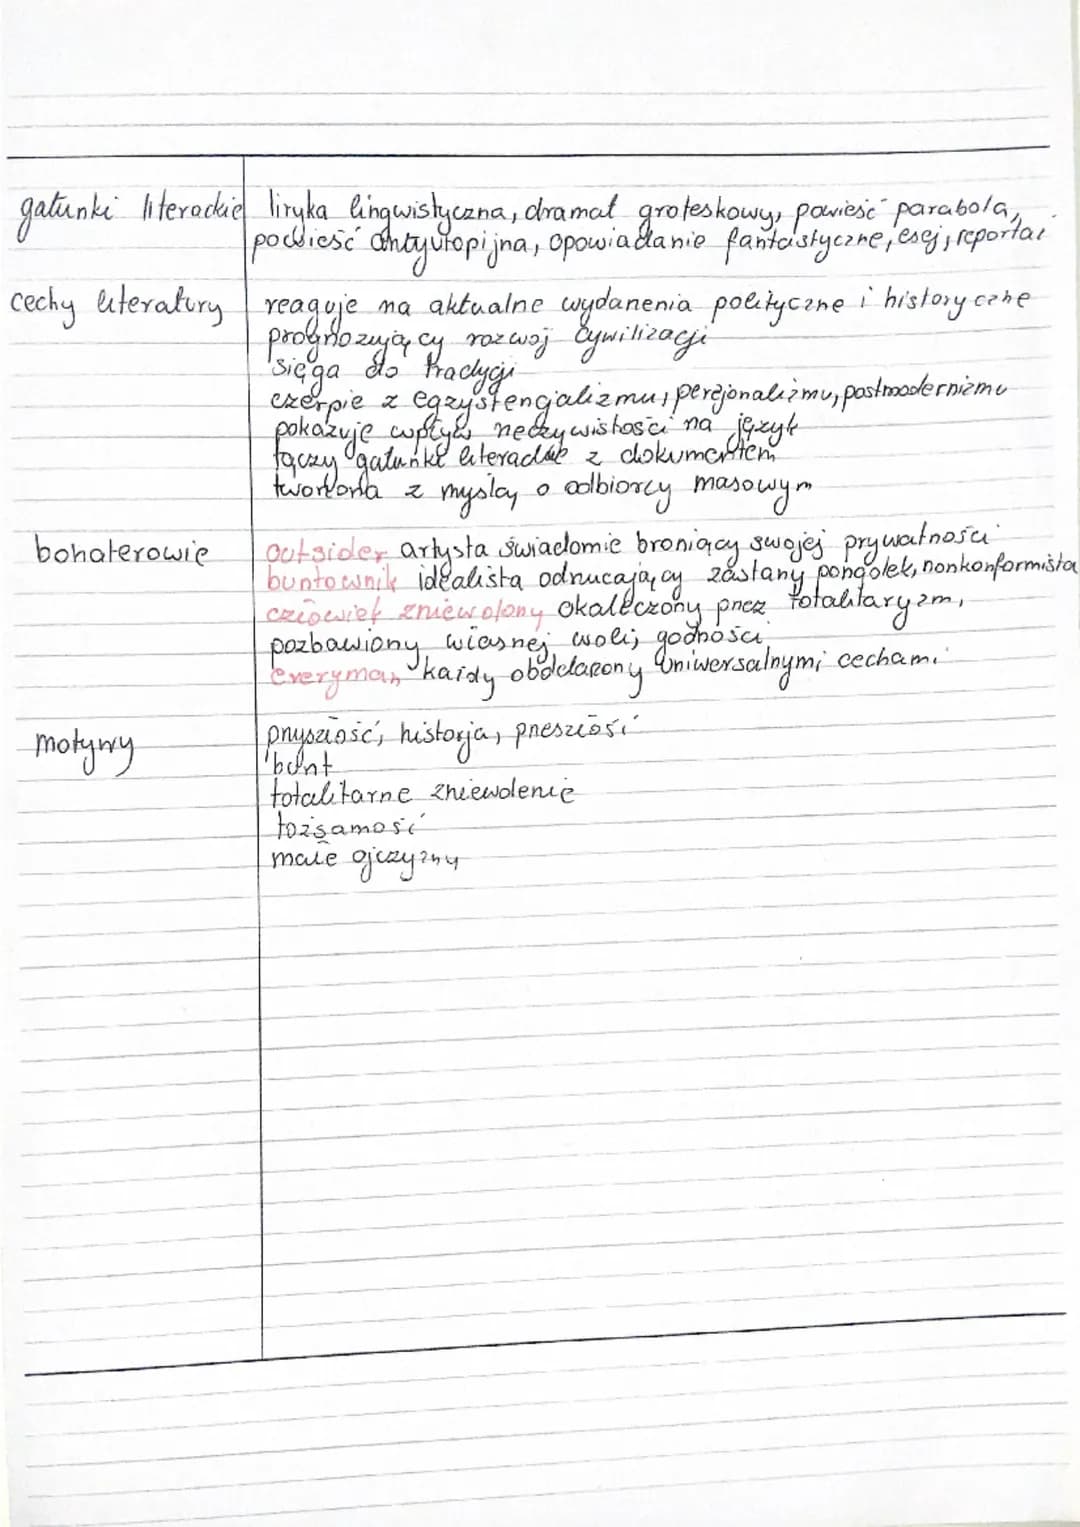 gatunki literackie liryka lingwistyczna, dramat groteskowy, powieść parabola,
powieść antyutopijna, opowiadanie fantastyczne, esej, reportaż
cechy literatury reaguje na aktualne wydarzenia polityczne i historyczne
prognozujący rozwój cywilizacji
sięga do tradycji
czerpie z egzystencjalizmu, persjonalizmu, postmodernizmu
pokazuje wpływ rzeczywistości na język
łączy gatunki literackie z dokumentem
tworzona z myślą o odbiorcy masowym
bohaterowie outsider artysta świadomie broniący swojej prywatności
buntownik idealista odrzucający zastany porządek, nonkonformista
człowiek zniewolony okaleczony przez totalitaryzm,
pozbawiony własnej woli, godności
everyman każdy obdarzony uniwersalnymi cechami
motywy przyszłość, historja, przeszłość
bunt
totalitarne zniewolenie
tożsamość
małe ojczyzny